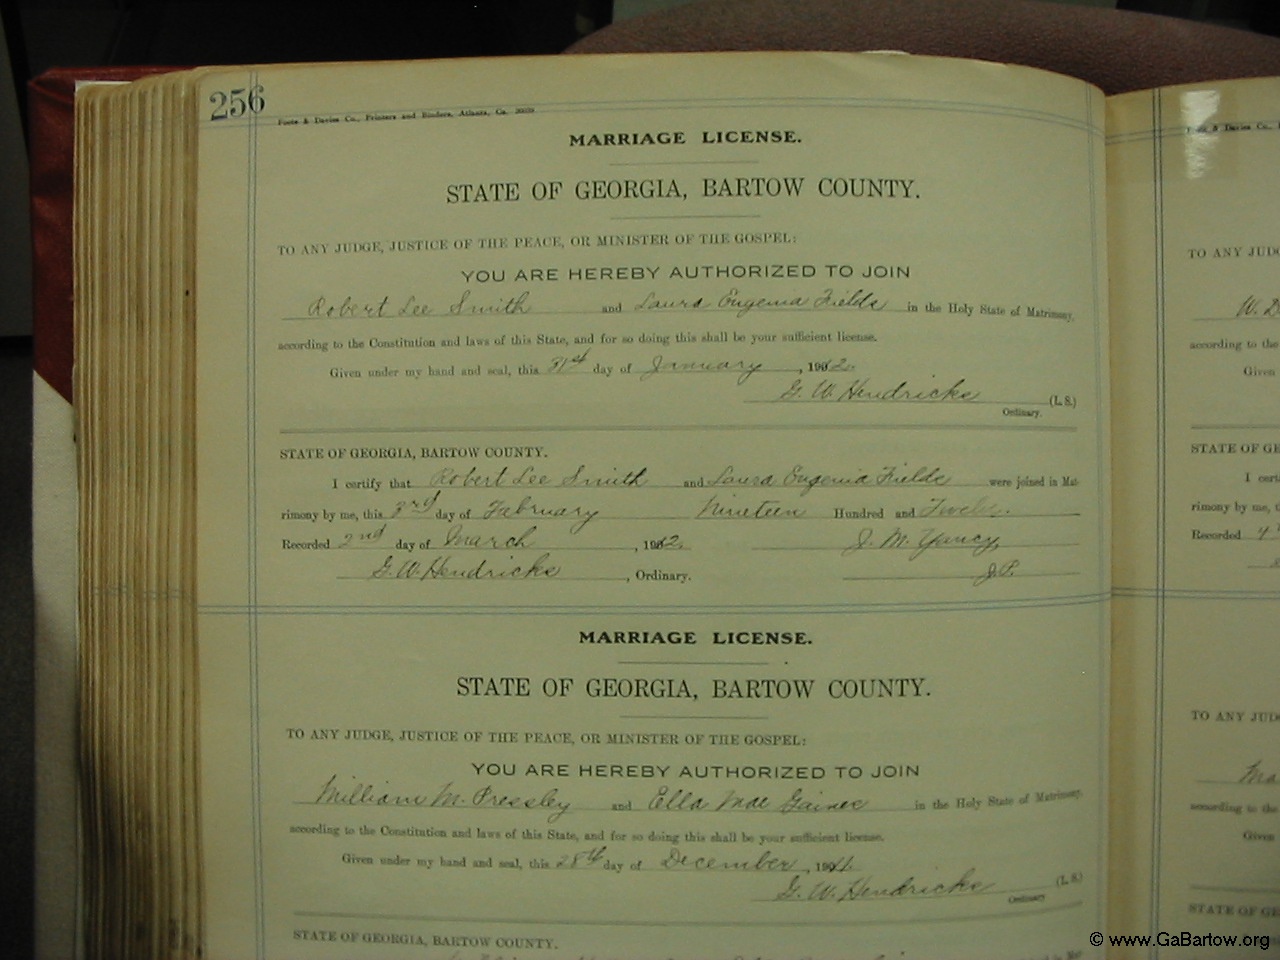 256
Foote & Davies Co., Printers and Binders, Atlanta, Ga.
MARRIAGE LICENSE.
STATE OF GEORGIA, BARTOW COUNTY.
TO ANY JUDGE, JUSTICE OF THE PEACE, OR MINISTER OF THE GOSPEL:
YOU ARE HEREBY AUTHORIZED TO JOIN
Robert Lee Smith and Laura Eugenia Fields in the Holy State of Matrimony,
according to the Constitution and laws of this State, and for so doing this shall be your sufficient license.
Given under my hand and seal, this 31st day of January, 1912.
G. W. Hendricks (L. S.)
Ordinary.
STATE OF GEORGIA, BARTOW COUNTY.
I certify that Robert Lee Smith and Laura Eugenia Fields were joined in Mat-
rimony by me, this 3rd day of February Nineteen Hundred and Twelve.
Recorded 2nd day of March, 1912. J. M. Yancy,
G. W. Hendricks, Ordinary. J. P.
MARRIAGE LICENSE.
STATE OF GEORGIA, BARTOW COUNTY.
TO ANY JUDGE, JUSTICE OF THE PEACE, OR MINISTER OF THE GOSPEL:
YOU ARE HEREBY AUTHORIZED TO JOIN
William M. Pressley and Ella Mae Gaines in the Holy State of Matrimony,
according to the Constitution and laws of this State, and for so doing this shall be your sufficient license.
Given under my hand and seal, this 28th day of December, 1911.
G. W. Hendricks (L. S.)
Ordinary
STATE OF GEORGIA, BARTOW COUNTY.
& Davies Co.,
TO ANY JUDG
W. D
according to the
Given
STATE OF GE
I certi
rimony by me, t
Recorded 4
TO ANY JUD
Ma
according to the
Given
STATE OF GE
© www.GaBartow.org